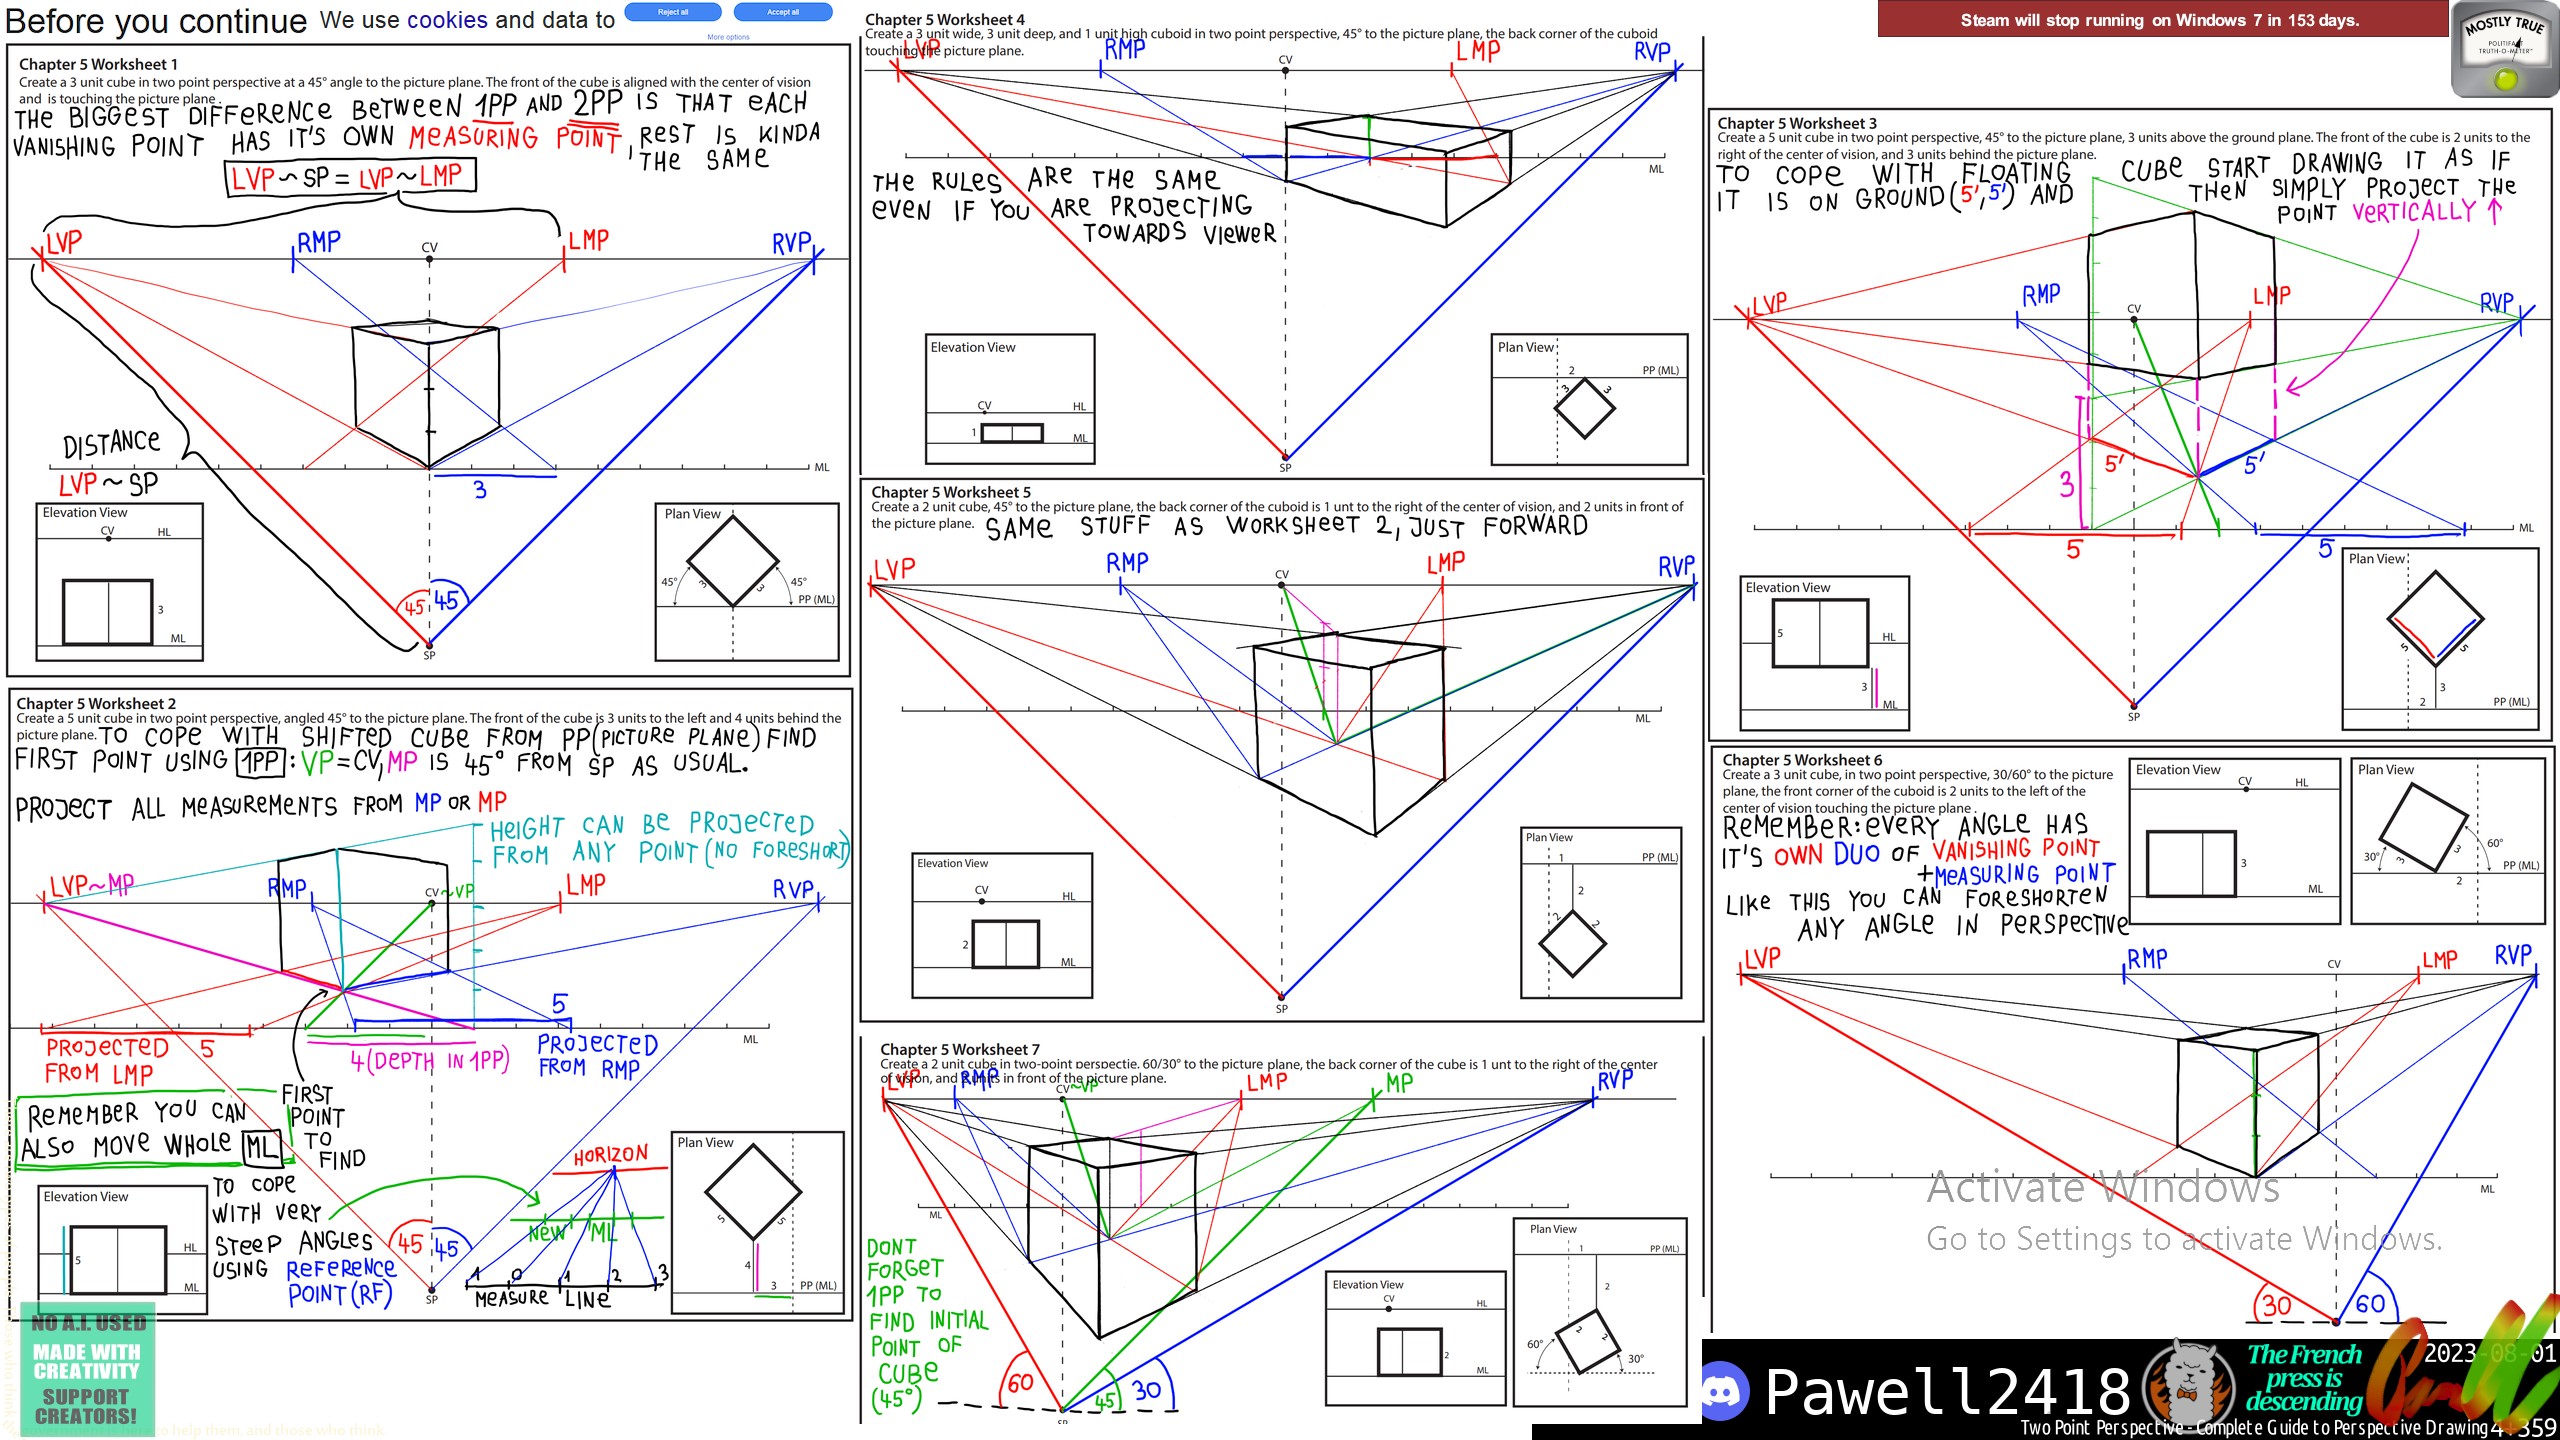 Before you continue We use cookies and data to
Reject all
Accept all
More options
Chapter 5 Worksheet 1
Create a 3 unit cube in two point perspective at a 45° angle to the picture plane. The front of the cube is aligned with the center of vision
and is touching the picture plane .
THE BIGGEST DIFFERENCE BETWEEN 1PP AND 2PP IS THAT EACH
VANISHING POINT HAS IT'S OWN MEASURING POINT, REST IS KINDA
THE SAME
LVP ~ SP = LVP ~ LMP
LVP
RMP
CV
LMP
RVP
DISTANCE
LVP ~ SP
3
ML
45
45
SP
Elevation View
CV
HL
3
ML
Plan View
45°
3
3
45°
PP (ML)
Chapter 5 Worksheet 2
Create a 5 unit cube in two point perspective, angled 45° to the picture plane. The front of the cube is 3 units to the left and 4 units behind the
picture plane. TO COPE WITH SHIFTED CUBE FROM PP(PICTURE PLANE) FIND
FIRST POINT USING 1PP: VP=CV, MP IS 45° FROM SP AS USUAL.
PROJECT ALL MEASUREMENTS FROM MP OR MP
HEIGHT CAN BE PROJECTED
FROM ANY POINT (NO FORESHORT)
LVP~MP
RMP
CV ~VP
LMP
RVP
5
ML
PROJECTED 5
FROM LMP
4(DEPTH IN 1PP)
PROJECTED
FROM RMP
REMEMBER YOU CAN
ALSO MOVE WHOLE ML
FIRST
POINT
TO
FIND
TO COPE
WITH VERY
STEEP ANGLES
USING REFERENCE
POINT (RF)
45
45
SP
HORIZON
NEW ML
-1 0 1 2 3
MEASURE LINE
Elevation View
5
HL
ML
Plan View
5
5
4
3
PP (ML)
NO A.I. USED
MADE WITH
CREATIVITY
SUPPORT
CREATORS!
to help them, and those who think.
Chapter 5 Worksheet 4
Create a 3 unit wide, 3 unit deep, and 1 unit high cuboid in two point perspective, 45° to the picture plane, the back corner of the cuboid
touching the picture plane.
LVP
RMP
CV
LMP
RVP
ML
THE RULES ARE THE SAME
EVEN IF YOU ARE PROJECTING
TOWARDS VIEWER
SP
Elevation View
CV
HL
1
ML
Plan View
2
PP (ML)
3
3
Chapter 5 Worksheet 5
Create a 2 unit cube, 45° to the picture plane, the back corner of the cuboid is 1 unt to the right of the center of vision, and 2 units in front of
the picture plane. SAME STUFF AS WORKSHEET 2, JUST FORWARD
LVP
RMP
CV
LMP
RVP
ML
SP
Elevation View
CV
HL
2
ML
Plan View
1
PP (ML)
2
2
2
Chapter 5 Worksheet 7
Create a 2 unit cube in two-point perspectie. 60/30° to the picture plane, the back corner of the cube is 1 unt to the right of the center
of vision, and 2 units in front of the picture plane.
LVP
RMP
CV ~VP
LMP
MP
RVP
ML
DONT
FORGET
1PP TO
FIND INITIAL
POINT OF
CUBE
(45°)
60
45
30
SP
Elevation View
CV
HL
2
ML
Plan View
1
PP (ML)
2
2
2
60°
30°
Steam will stop running on Windows 7 in 153 days.
MOSTLY TRUE
POLITIFACT
TRUTH-O-METER™
Chapter 5 Worksheet 3
Create a 5 unit cube in two point perspective, 45° to the picture plane, 3 units above the ground plane. The front of the cube is 2 units to the
right of the center of vision, and 3 units behind the picture plane.
TO COPE WITH FLOATING CUBE START DRAWING IT AS IF
IT IS ON GROUND(5',5') AND THEN SIMPLY PROJECT THE
POINT VERTICALLY ↑
LVP
RMP
CV
LMP
RVP
5'
5'
3
ML
5
5
SP
Elevation View
5
HL
3
ML
Plan View
5
5
3
2
PP (ML)
Chapter 5 Worksheet 6
Create a 3 unit cube, in two point perspective, 30/60° to the picture
plane, the front corner of the cuboid is 2 units to the left of the
center of vision touching the picture plane .
REMEMBER: EVERY ANGLE HAS
IT'S OWN DUO OF VANISHING POINT
+MEASURING POINT
LIKE THIS YOU CAN FORESHORTEN
ANY ANGLE IN PERSPECTIVE
Elevation View
CV
HL
3
ML
Plan View
30°
3
3
60°
PP (ML)
2
LVP
RMP
CV
LMP
RVP
ML
30
60
Activate Windows
Go to Settings to activate Windows.
Pawell2418
The French
press is
descending
2023-08-01
Two Point Perspective - Complete Guide to Perspective Drawing 4+359